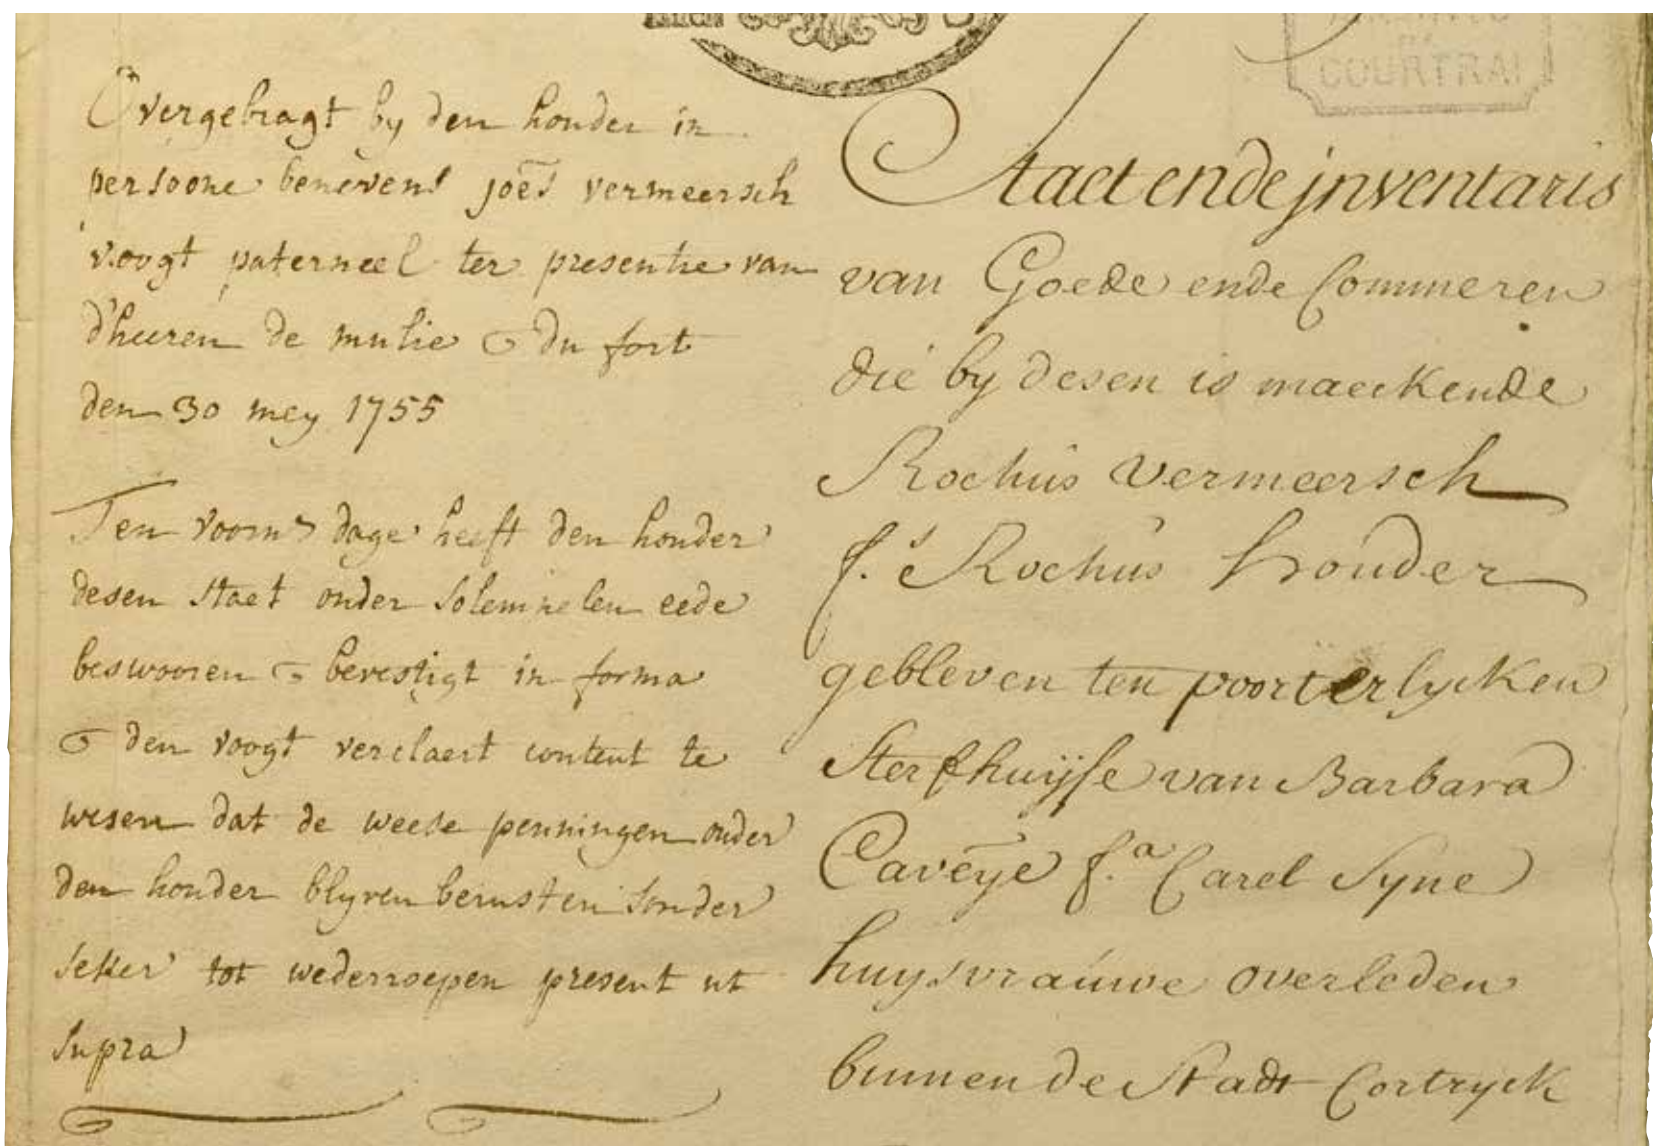 COURTRAI
Overgebragt by den houder in
persoone benevens joẽs vermeersch
voogt paterneel ter presentie van
d'heeren de mulie & du fort
den 30 mey 1755
Ten voorn dage heeft den houder
desen staet onder solemnelen eede
beswooren & bevestigt in forma
& den voogt verclaert content te
wesen dat de weese penningen onder
den houder blyven berusten sonder
seker tot wederroepen present ut
supra
Staet ende jnventaris
van Goede ende Commeren
die by desen is maeckende
Rochus vermeersch
f.s Rochus houder
gebleven ten poorterlycken
Sterfhuijse van Barbara
Caveye f.a Carel Syne
huysvrauwe overleden
binnen de Stadt Cortryck